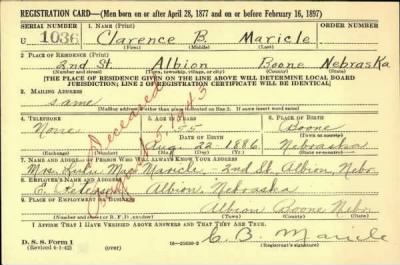 REGISTRATION CARD—(Men born on or after April 28, 1877 and on or before February 16, 1897)
SERIAL NUMBER 1. NAME (Print)
U 1036 Clarence B. Maricle
(First) (Middle) (Last)
2. PLACE OF RESIDENCE (Print)
2nd St. Albion Boone Nebraska
(Number and street) (Town, township, village, or city) (County) (State)
[THE PLACE OF RESIDENCE GIVEN ON THE LINE ABOVE WILL DETERMINE LOCAL BOARD
JURISDICTION; LINE 2 OF REGISTRATION CERTIFICATE WILL BE IDENTICAL]
3. MAILING ADDRESS
same
[Mailing address if other than place indicated on line 2. If same insert word same]
4. TELEPHONE 5. AGE IN YEARS 6. PLACE OF BIRTH
None 55 Boone
DATE OF BIRTH (Town or county)
Aug. 22 1886 Nebraska
(Exchange) (Number) (Mo.) (Day) (Yr.) (State or country)
Deceased
1943
7. NAME AND ADDRESS OF PERSON WHO WILL ALWAYS KNOW YOUR ADDRESS
Mrs. Lulu Maricle, 2nd St. Albion, Nebr.
8. EMPLOYER'S NAME AND ADDRESS
Albion, Nebraska
9. PLACE OF EMPLOYMENT OR BUSINESS
Albion Boone Nebr.
(Number and street or R. F. D. number) (Town) (County) (State)
I AFFIRM THAT I HAVE VERIFIED ABOVE ANSWERS AND THAT THEY ARE TRUE.
D. S. S. Form 1
(Revised 4-1-42) (over) C. B. Maricle
(Registrant's signature)